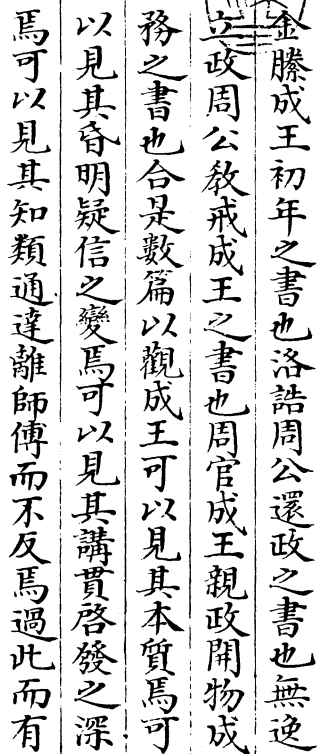 金縢成王初年之書也洛誥周公還政之書也無逸
立政周公教戒成王之書也周官成王親政開物成
務之書也合是數篇以觀成王可以見其本質焉可
以見其昏明疑信之變焉可以見其講貫啓發之深
焉可以見其知類通達離師傅而不反焉過此而有